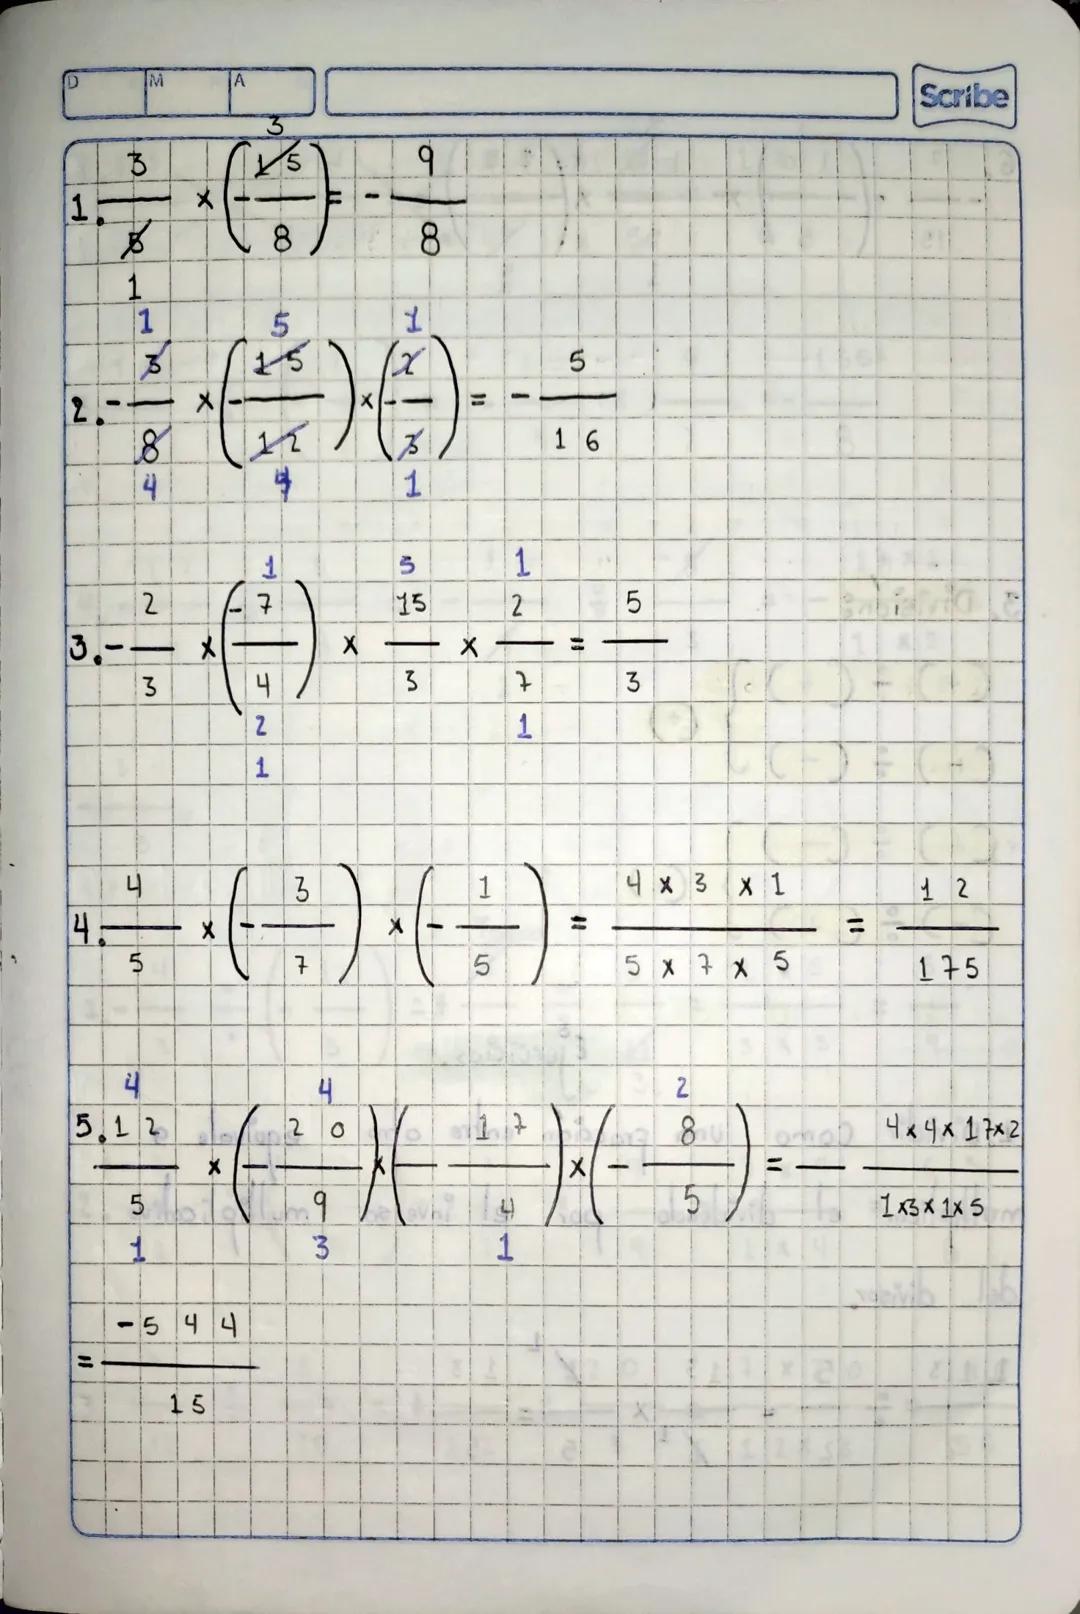 D M A Scribe
1. 3/5 × (- 15/8) = - 9/8
3
1
1 5 1
2. - 3/8 × (- 15/12) × (- 2/3) = - 5/16
4 4 1
1 5 1
3. - 2/3 × (-7/4) × 15/3 × 2/7 = 5/3
2 1
1
4. 4/5 × (- 3/7) × (- 1/5) = 4 × 3 × 1/5 × 7 × 5 = 12/175
4 4 2
5. 12/5 × (- 20/9) × (- 17/4) × (- 8/5) = - 4×4×17×2/1×3×1×5
1 3 1
= -544/15